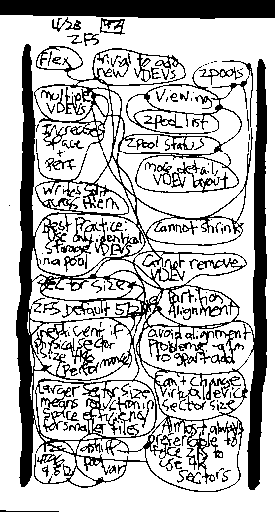 4/28
ZFS
Flex
trivial to add
new VDEVs
Zpools
multiple
VDEVs
Viewing
Zpool list
Increases
space
perf
Zpool status
more detail,
VDEV layout
Writes split
across them
Best Practice:
Use only identical
storage VDEVs
in a pool
cannot shrink
Cannot remove
VDEV
Sector Size
ZFS Default 512
Partition
Alignment
inefficient if
physical sector
size 4K
(performance)
avoid alignment
problems
gpart add
larger sector size
means reduction in
space efficiency
for smaller files
Can't change
virtual device
sector size
Almost always
preferable to
force ZFS to
use 4K
sectors
ashift
pool
var